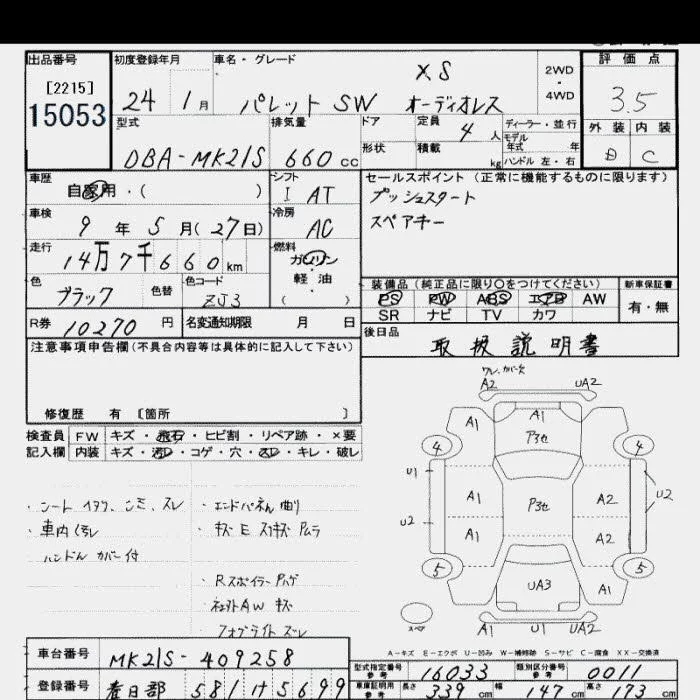 出品番号
[2215]
15053
初度登録年月
24 1月
車名・グレード
XS
パレット SW オーディオレス
2WD
・
4WD
評価点
3.5
外装 内装
D C
型式
DBA-MK21S
排気量
660cc
ドア
形状
定員
4人
積載
kg
ディーラー・並行
モデル
年式 年
ハンドル 左・右
車歴
自家用・( )
シフト
I AT
セールスポイント (正常に機能するものに限ります)
プッシュスタート
スペアキー
車検
9年5月(27日)
冷房
AC
走行
14万7千660km
燃料
ガソリン
軽油
( )
色
ブラック
色替
色コード
ZJ3
装備品(純正品に限り○をつけてください)
PS PW ABS エアB AW
SR ナビ TV カワ
新車保証書
有・無
R券
10270円
名変通知期限 月 日
後日品
取扱説明書
注意事項申告欄(不具合内容等は具体的に記入して下さい)
修復歴 有 〔箇所 〕
検査員 FW キズ・飛石・ヒビ割・リペア跡・×要
記入欄 内装 キズ・汚レ・コゲ・穴・スレ・キレ・破レ
・シート シミ、スレ
・車内
ハンドル カバー付
・エンドパネル 曲り
・キズ E スリキズ Pムラ
・Rスポイラー Pハゲ
・社外AW キズ
・フォグライト ズレ
ワレ、カバー欠
A2 UA2
A1 A1
P3セ
4 4
U1
A1 P3セ A2
U2
U2
A1 A2
5 5
UA3
A1
A1 U1 UA2
スペア
A-キズ E-エクボ U-凹み W-補修跡 S-サビ C-腐食 XX-交換済
車台番号
MK21S-409258
型式指定番号
参考
16033
類別区分番号
参考
0011
登録番号
春日部 581 け 5699
車庫証明用
参考
長さ 339cm
幅 147cm
高さ 173cm